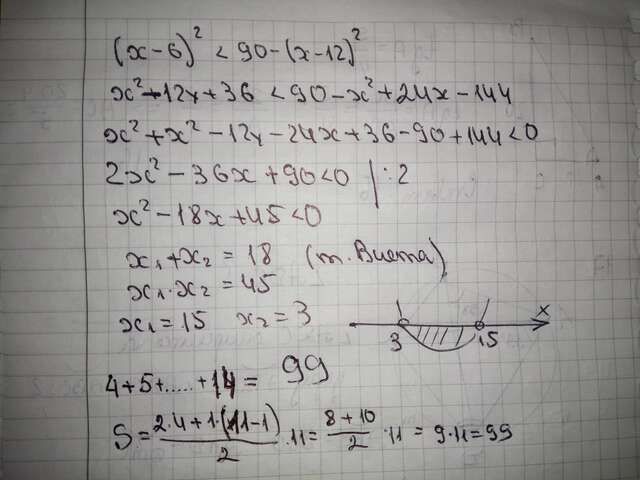 (x-6)² < 90-(x-12)²
x²-12x+36 < 90-x²+24x-144
x²+x²-12x-24x+36-90+144<0
2x²-36x+90<0 |:2
x²-18x+45<0
x₁+x₂=18 (т. Виета)
x₁·x₂=45
x₁=15 x₂=3
3 15 x
4+5+.....+14= 99
S= 2·4+1(11-1)/2 ·11= 8+10/2 ·11 = 9·11=99